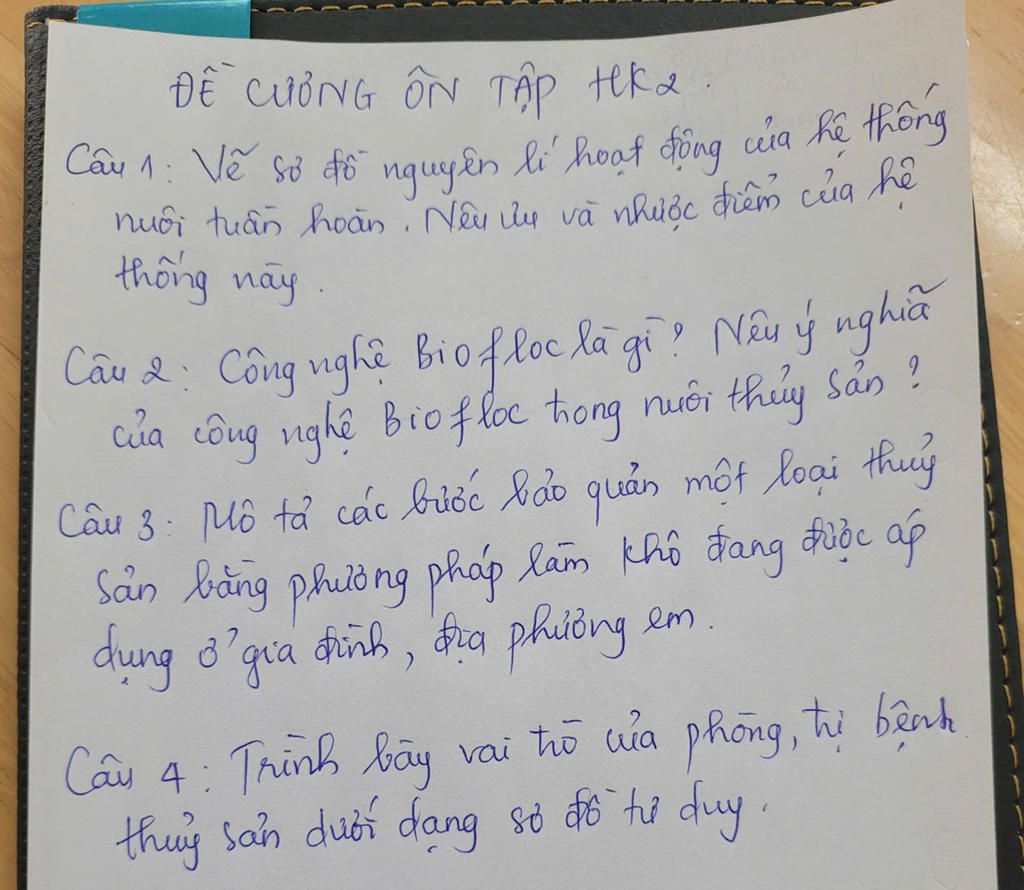 ĐỀ CƯƠNG ÔN TẬP HK2.
Câu 1: Vẽ sơ đồ nguyên lí hoạt động của hệ thống
nuôi tuần hoàn. Nêu ưu và nhược điểm của hệ
thống này.
Câu 2: Công nghệ Biofloc là gì? Nêu ý nghĩa
của công nghệ Biofloc trong nuôi thủy sản?
Câu 3: Mô tả các bước bảo quản một loại thuỷ
sản bằng phương pháp làm khô đang được áp
dụng ở gia đình, địa phương em.
Câu 4: Trình bày vai trò của phòng, trị bệnh
thuỷ sản dưới dạng sơ đồ tư duy.